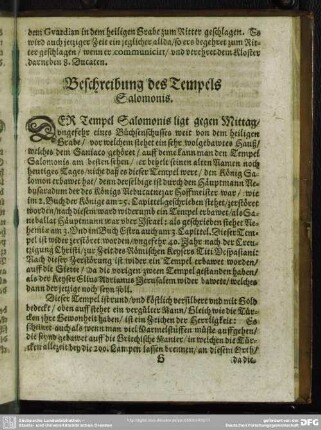 dem Gvardian in dem heiligen Grabe zum Ritter geschlagen. Es
wird auch jetziger Zeit ein jeglicher allda / so ers begehret zum Rit-
ter geschlagen / wenn er communiciret / und verehret dem Kloster
darneben 8. Ducaten.
Beschreibung des Tempels
Salomonis.
DER Tempel Salomonis ligt gegen Mittag /
vngefehr eines Büchsenschusses weit von dem heiligen
Grabe / vor welchem stehet ein sehr wolgebawtes Hauß /
welches dem Saniaco gehöret / auß deme kann man den Tempel
Salomonis am besten sehen / er behelt seinen alten Namen noch
heutiges Tages / nicht daß es dieser Tempel were / den König Sa-
lomon erbawet hat / denn derselbige ist durch den Häuptmann Ne-
busaradum der des Königs Nebucatnezar Hoffmeister war / wie
im 2. Buch der Könige am 25. Capittel geschrieben stehet / zerstöret
worden / nach diesem ward widerumb ein Tempel erbawet / als Sa-
neballat Häuptmann war vber Israel: als geschrieben stehet Ne-
hemiæ am 3. Vnd im Buch Estra auch am 3. Capittel. Dieser Tem-
pel ist wider zerstöret worden / vngefehr 40. Jahr nach der Creu-
tzigung Christi / zur Zeit des Römischen Keysers Titi Vespasiani:
Nach dieser Zerstörung ist wider ein Tempel erbawet worden /
auff die Stette / da die vorigen zween Tempel gestanden haben /
als der Keyser Elius Adrianus Jerusalem wider bawete / welches
dann der jetzige noch seyn soll.
Dieser Tempel ist rund / und köstlich versilbert und mit Gold
bedeckt / oben auff stehet ein vergülter Mann / Gleich wie die Tür-
cken ihre Gewonheit haben / ist ein Zeichen der Herrligkeit: Es
scheinet auch als wenn man viel Marmelstuffen müste auffgehen /
die seynd gebawet auff die Griechische Manier / in welchen die Tür-
cken allezeit bey die 200. Lampen lassen brennen / an diesem Orth /
G
da die